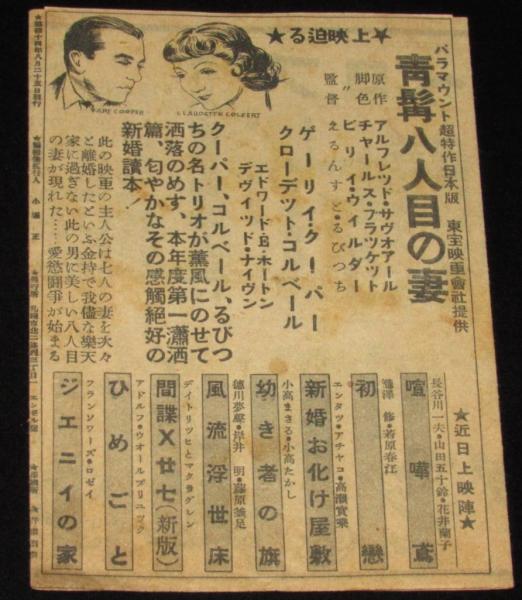 ★上映迫る★
GARY COOPER
CLAUDETTE COLBERT
パラマウント超特作日本版　東宝映画會社提供
青髯八人目の妻
原作　アルフレッド・サヴォアール
脚色　チャールス・ブラッケット
〃　ビリイ・ワイルダー
監督　えるんすと・るびつち
ゲーリイ・クーパー
クローデット・コルベール
エドワード・E・ホートン
デヴィッド・ナイヴン
クーパー、コルベール、るびつ
ちの名トリオが薫風にのせて
洒落のめす、本年度第一瀟洒
篇、匂やかなその感觸絶好の
新婚讀本！
此の映画の主人公は七人の妻を次々
と離婚したといふ金持で我儘な樂天
家に過ぎない此の男に美しい八人目
の妻が現れた……愛慾闘爭が始まる
★近日上映陣★
長谷川一夫・山田五十鈴・花井蘭子
喧嘩鳶
修・若原春江
初戀
エンタツ・アチャコ・高瀬實乘
新婚お化け屋敷
小高まさる・小高たかし
幼き者の旗
徳川夢聲・岸井明・藤原釜足
風流浮世床
デイトリッヒとマクラグレン
間諜X廿七（新版）
アドルフ・ウオールブリュック
ひめごと
フランソワーズ・ロゼイ
ジエニイの家
昭和十四年八月二十五日発行